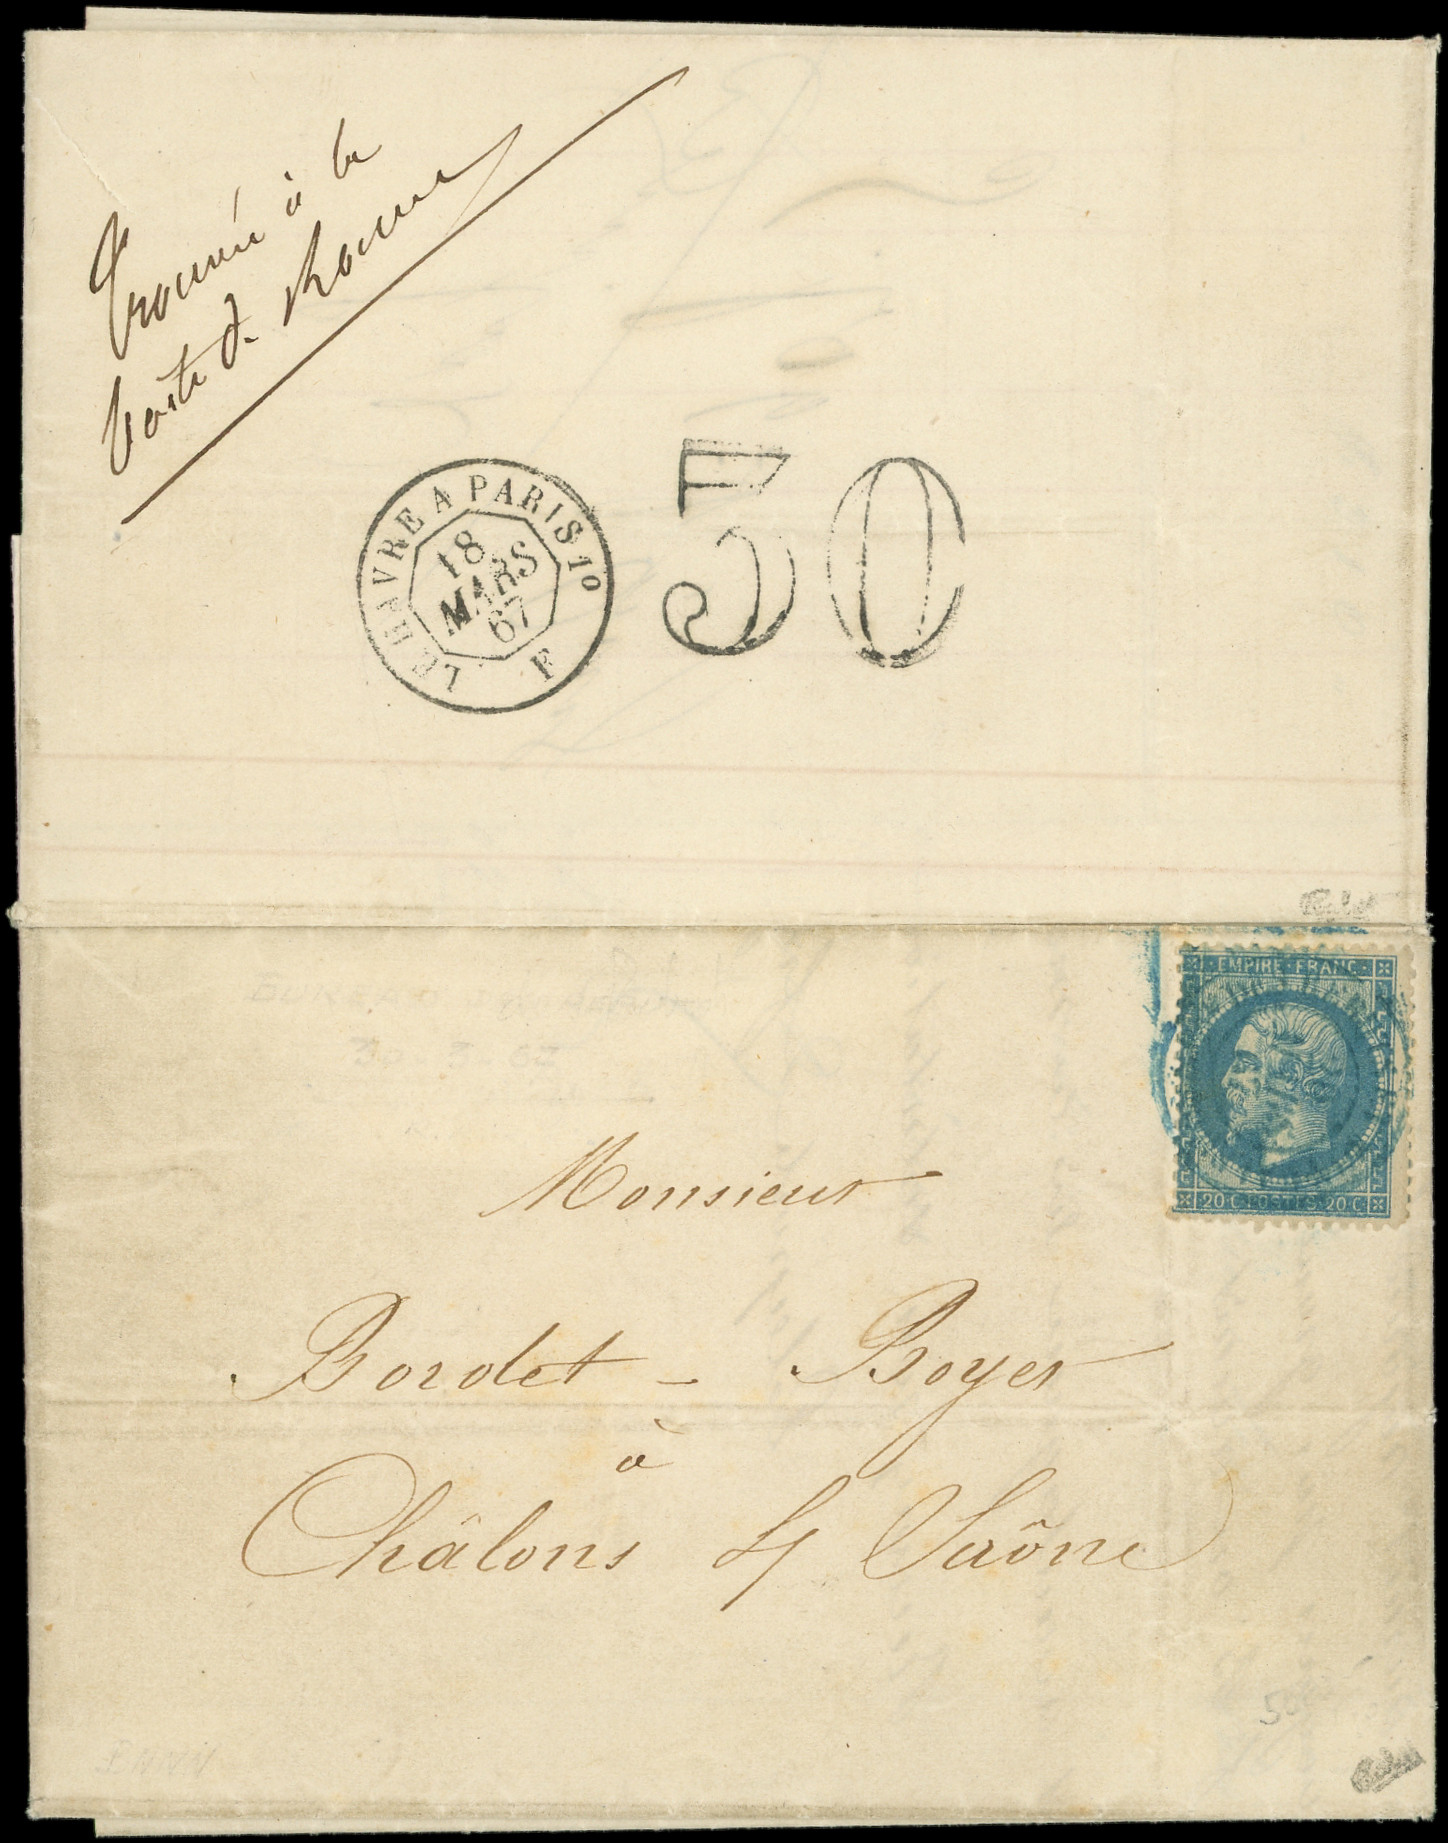 Trouvée à la
boîte de Rouen
LE HAVRE A PARIS 1°
18
MARS
67
F
30
EMPIRE·FRANC·
20·C POSTES 20·C
Monsieur
Bordet - Boyer
à
Châlons s/ Saône